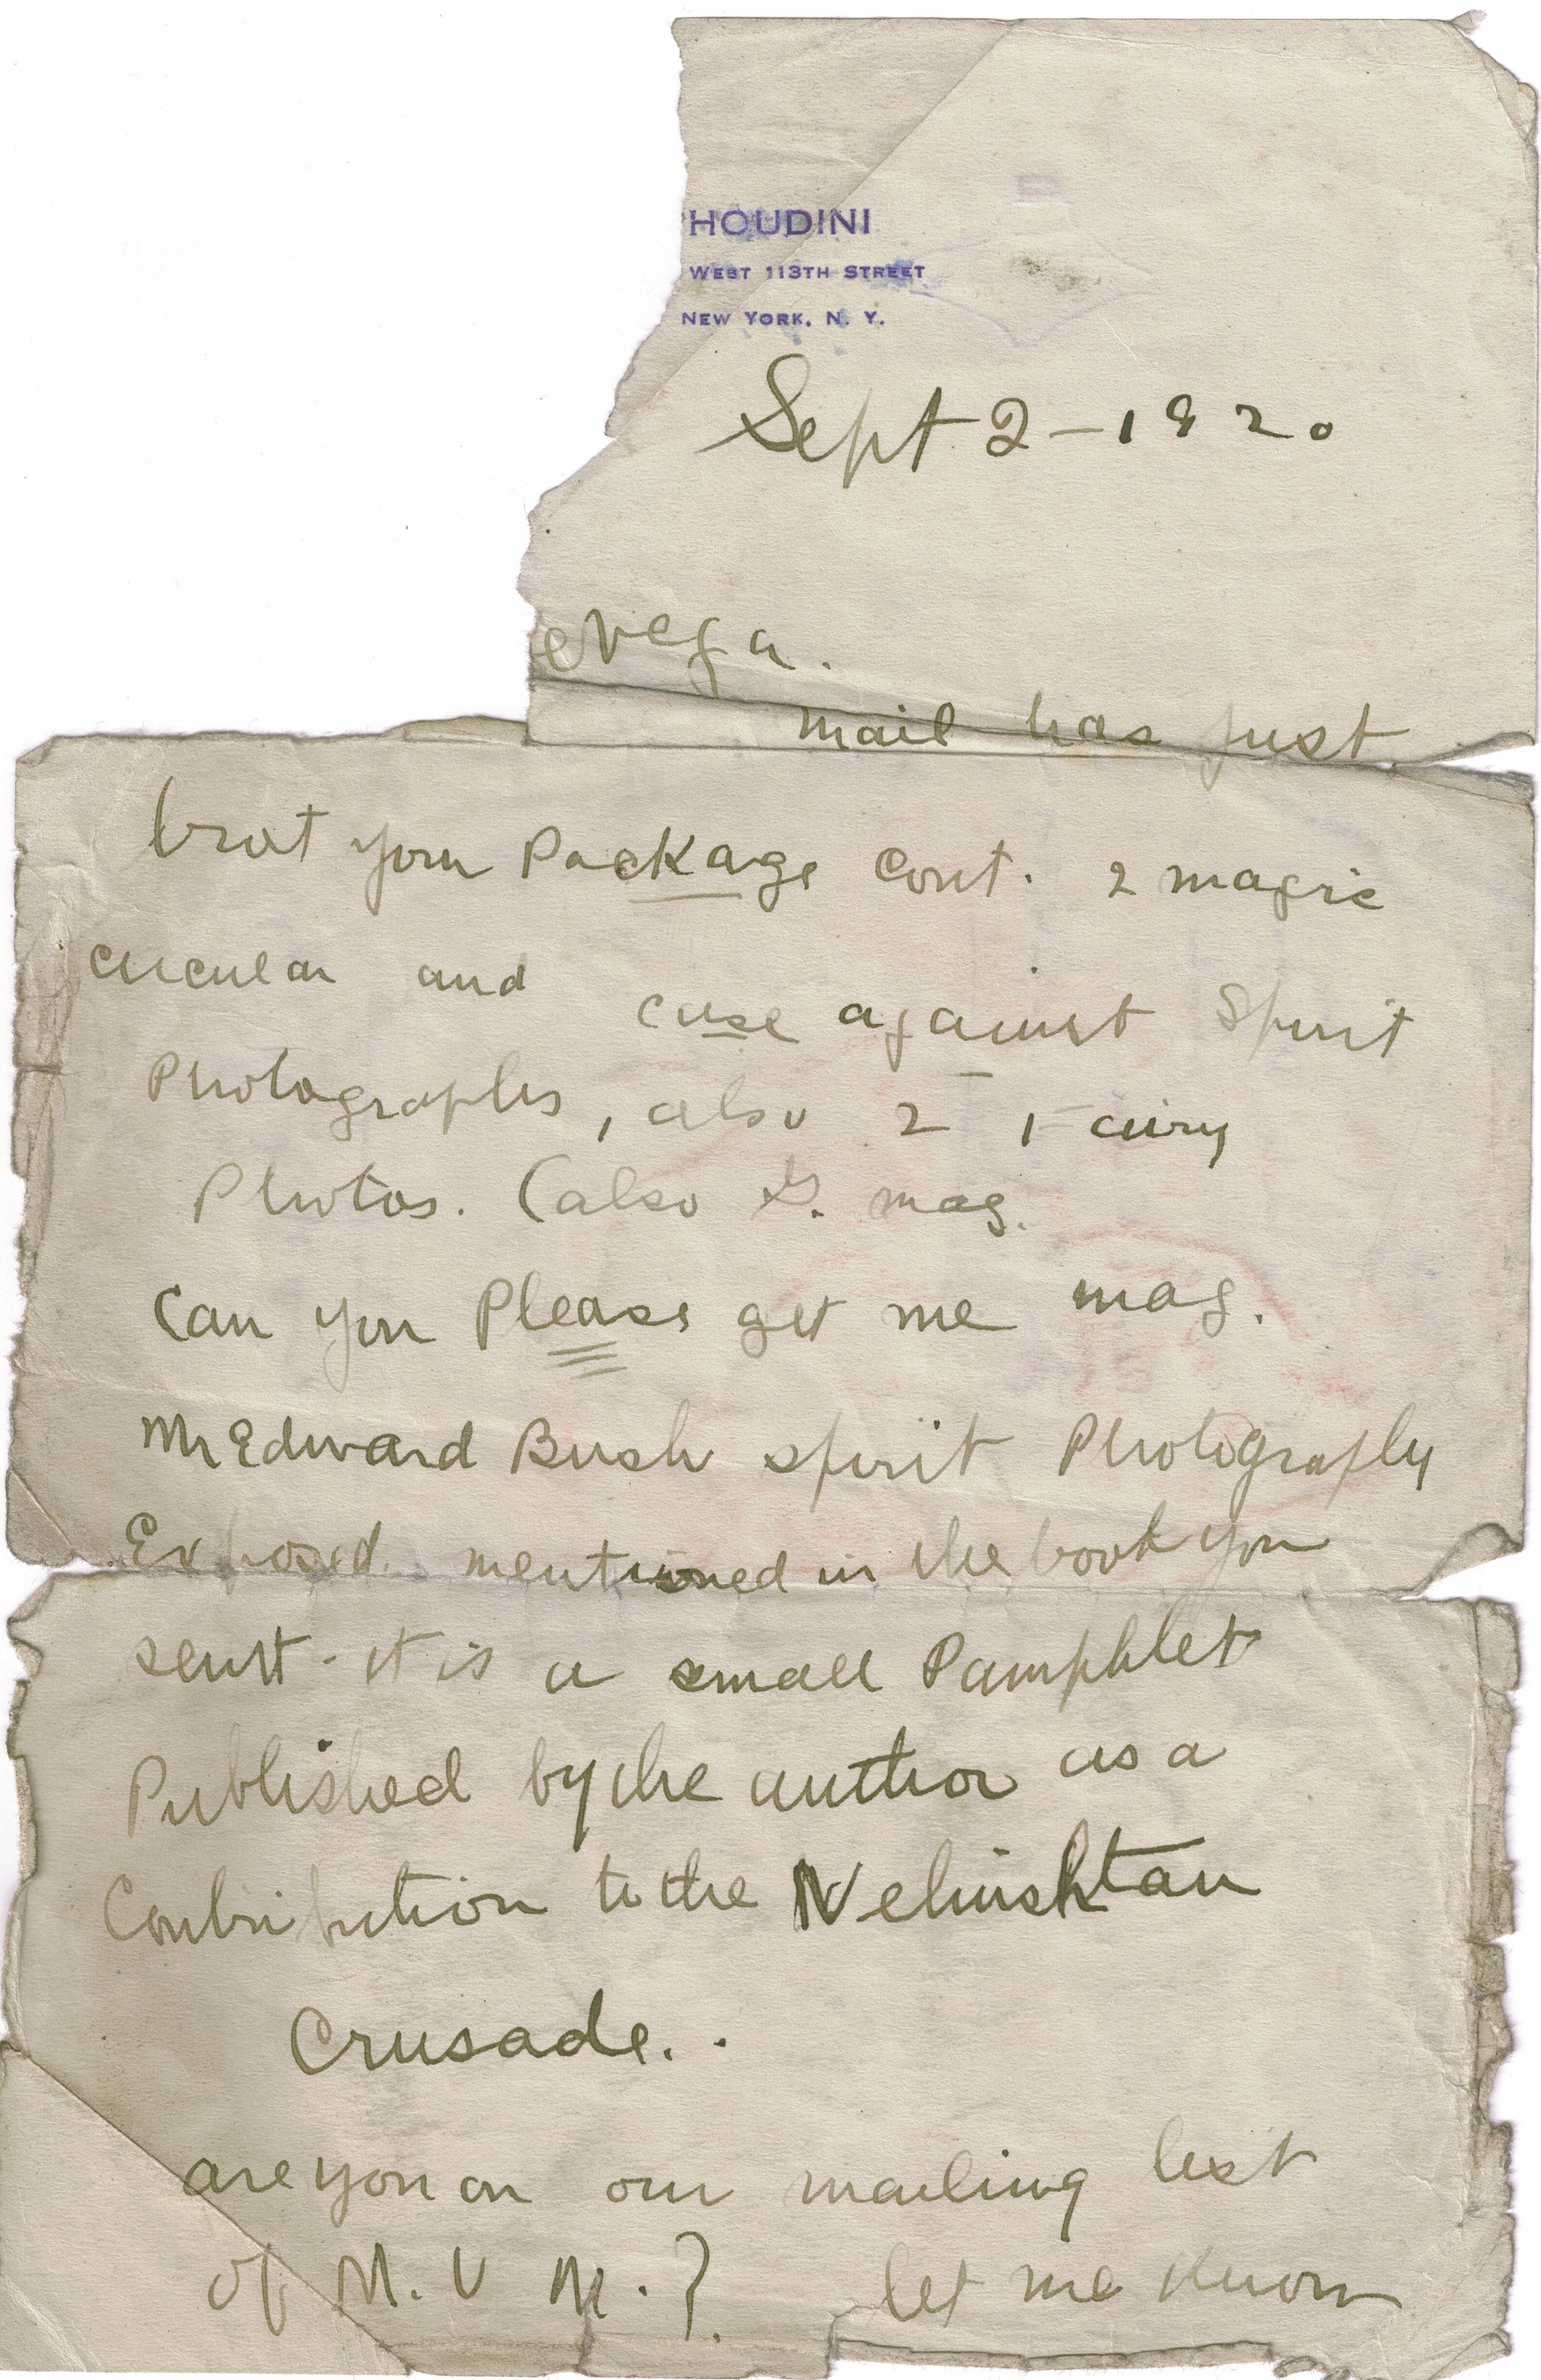 HOUDINI
WEST 113TH STREET
NEW YORK, N. Y.
Sept 2 - 1920
eVega.
mail has just
brot your Package Cont. 2 magic
circular and case against Spirit
Photographs, also 2 Fairy
Photos. (also S. mag.
Can you Please get me mag.
Mr Edward Bush spirit Photography
Exposed mentioned in the book you
sent - it is a small Pamphlet
Published by the author as a
Contribution to the Nehushtan
Crusade..
are you on our mailing list
of M. U M. ? let me know